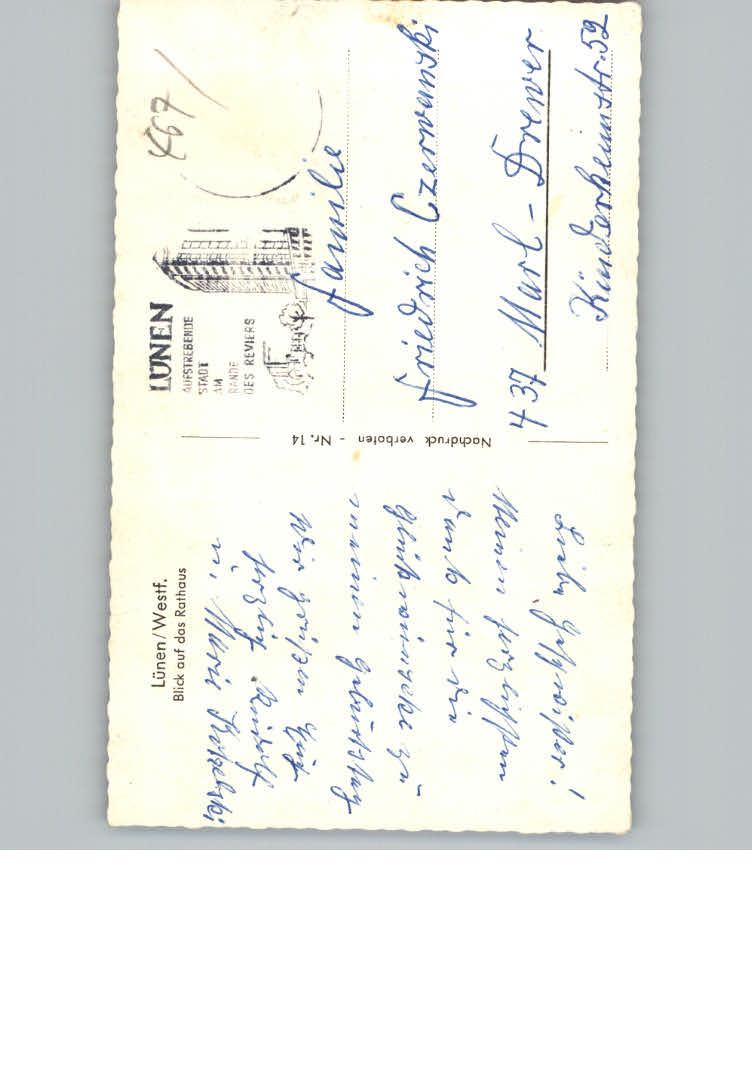 Lünen/Westf.
Blick auf das Rathaus
Liebe Geschwister!
Meinen herzlichsten
Dank für die
Glückwünsche zu
meinem Geburtstag
Wir grüßen Euch
herzlich Rudolf
u. Maria
Nachdruck verboten - Nr. 14
LÜNEN
AUFSTREBENDE
STADT
AM
RANDE
DES REVIERS
467
Familie
Friedrich Czerwanski
437 Marl - Drewer
Kinderheimstr. 52